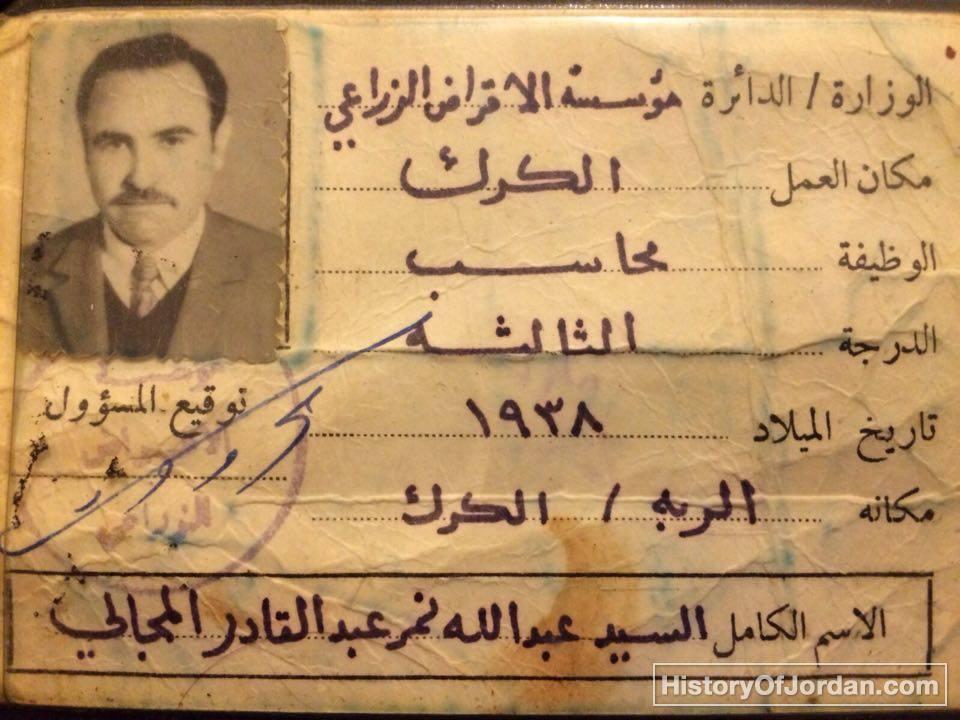 الوزارة / الدائرة مؤسسة الاقراض الزراعي
مكان العمل الكرك
الوظيفة محاسب
الدرجة الثالثة
تاريخ الميلاد ١٩٣٨
مكانه الربه / الكرك
توقيع المسؤول
الاقراض
الزراعي
الاسم الكامل السيد عبدالله نمر عبدالقادر المجالي
HistoryOfJordan.com